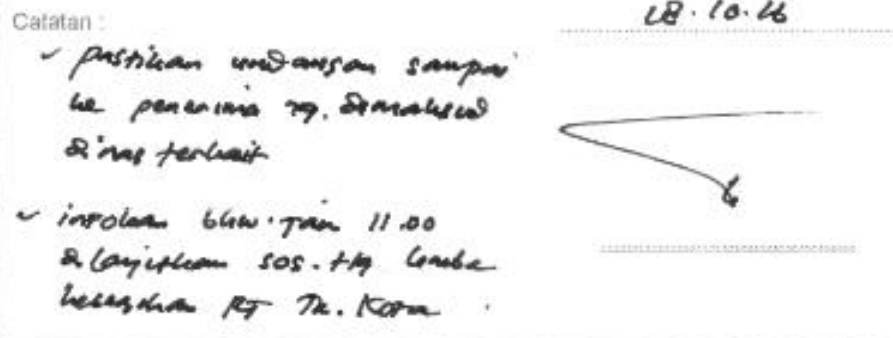 Catatan :
18.10.16
✓ pastikan undangan sampai
ke penerima yg. dimaksud
dinas terkait
✓ infokan bhw. jam 11.00
dilanjutkan sos. ttg lomba
RT Tk. Kota